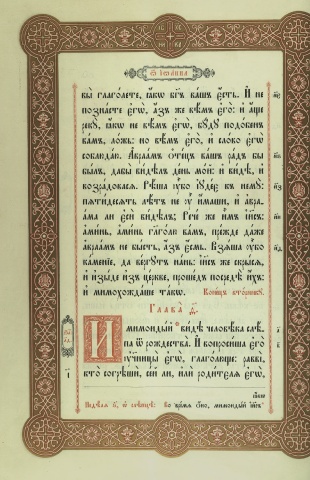 Ѿ Іѡа́нна
вы̀ глаго́лете, ꙗ҆́кѡ бг҃ъ ва́шъ є҆́сть. И҆ не
позна́сте є҆гѡ̀, а҆́зъ же вѣ́мъ є҆го̀: и҆ а҆́ще
рекꙋ̀, ꙗ҆́кѡ не вѣ́мъ є҆гѡ̀, бꙋ́дꙋ подо́бенъ
ва́мъ, ло́жь: но вѣ́мъ є҆го̀, и҆ сло́во є҆гѡ̀
соблюда́ю. А҆враа́мъ ѻ҆те́цъ ва́шъ ра́дъ бы̀
бы́лъ, да́бы ви́дѣлъ де́нь мо́й: и҆ ви́дѣ, и҆
возра́довасѧ. Рѣ́ша ᲂу҆̀бо і҆ꙋде́є къ немꙋ̀:
пѧтидесѧ́тъ лѣ́тъ не ᲂу҆̀ и҆́маши, и҆ а҆вра-
а́ма ли є҆сѝ ви́дѣлъ; Рече́ же и҆̀мъ і҆и҃съ:
а҆ми́нь, а҆ми́нь глаго́лю ва́мъ, пре́жде да́же
а҆враа́мъ не бы́сть, а҆́зъ є҆́смь. Взѧ́ша ᲂу҆̀бо
ка́менїе, да ве́ргꙋтъ на́нь: і҆и҃съ же скры́сѧ,
и҆ и҆зы́де и҆з̾ це́ркве, проше́дъ посредѣ̀ и҆́хъ:
и҆ мимохожда́ше та́кѡ. Коне́цъ вто́рникꙋ.
Глава̀ ѳ҃.
И҆ мимоиды́й ви́дѣ человѣ́ка слѣ́-
па ѿ рождества̀. И҆ вопроси́ша є҆го̀
ᲂу҆чн҃цы̀ є҆гѡ̀, глаго́люще: раввѝ,
кто̀ согрѣшѝ, се́й ли, и҆лѝ роди́телѧ є҆гѡ̀,
ꙗ҆́кѡ
Недѣ́лѧ ѕ҃, ѡ҆ слѣпцѣ̀: Во вре́мѧ ѻ҆́но, мимоиды́й і҆и҃съ